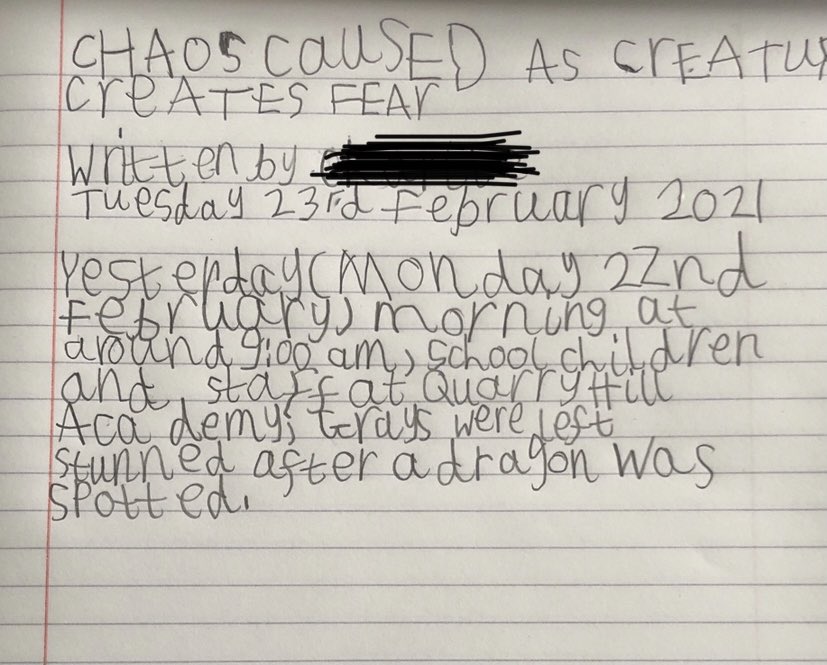 CHAOS CAUSED AS CREATU
CREATES FEAR
Written by
Tuesday 23rd February 2021
Yesterday (Monday 22nd
February) morning at
around 9:00 am, school children
and staff at Quarry Hill
Aca demy, Grays were left
stunned after a dragon was
spotted.